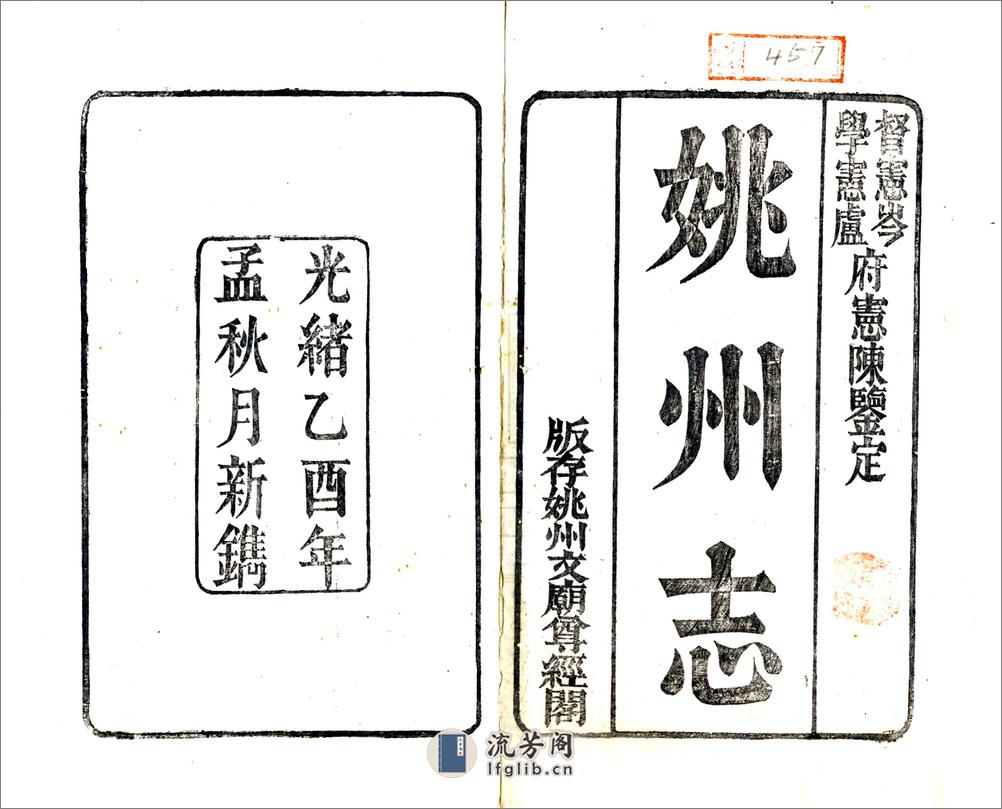 457
督憲岑
學憲盧
府憲陳鑒定
姚州志
版存姚州文廟尊經閣
光緒乙酉年
孟秋月新鐫
流芳阁
lfglib.cn